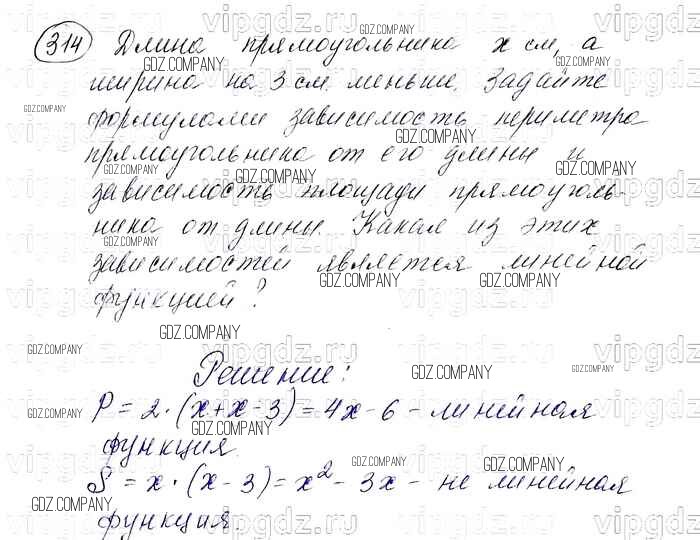 314 Длина прямоугольника x см, а
ширина на 3 см меньше. Задайте
формулами зависимость периметра
прямоугольника от его длины и
зависимость площади прямоуголь-
ника от длины. Какая из этих
зависимостей является линейной
функцией?
Решение:
P = 2·(x+x-3) = 4x-6 - линейная
функция.
S = x·(x-3) = x² - 3x - не линейная
функция.
vipgdz.ru
GDZ.COMPANY